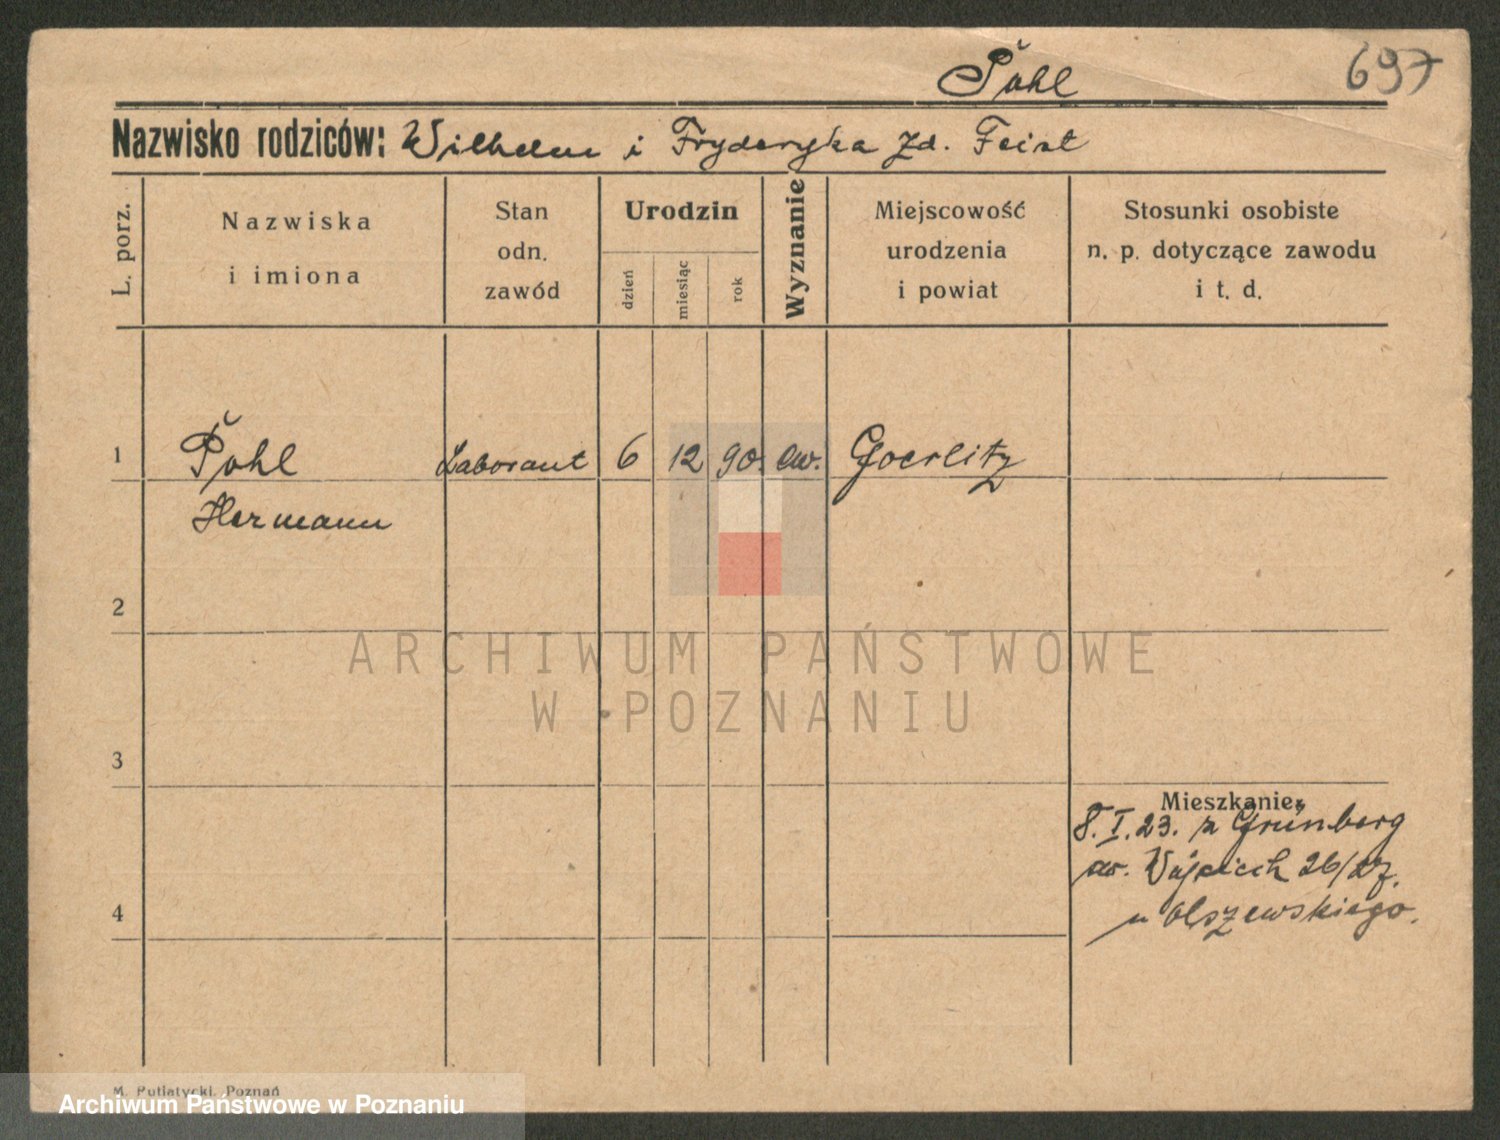 Pohl
697
Nazwisko rodziców: Wilhelm i Fryderyka zd. Feist
L. porz.
Nazwiska
i imiona
Stan
odn.
zawód
Urodzin
dzień
miesiąc
rok
Wyznanie
Miejscowość
urodzenia
i powiat
Stosunki osobiste
n. p. dotyczące zawodu
i t. d.
1
Pohl
Laborant
6
12
90.
ew.
Goerlitz
Hermann
2
ARCHIWUM PAŃSTWOWE
W POZNANIU
3
Mieszkanie:
8.I.23. z Grünberg
św. Wojciech 26/27.
u Olszewskiego.
4
M. Putiatycki, Poznań
Archiwum Państwowe w Poznaniu